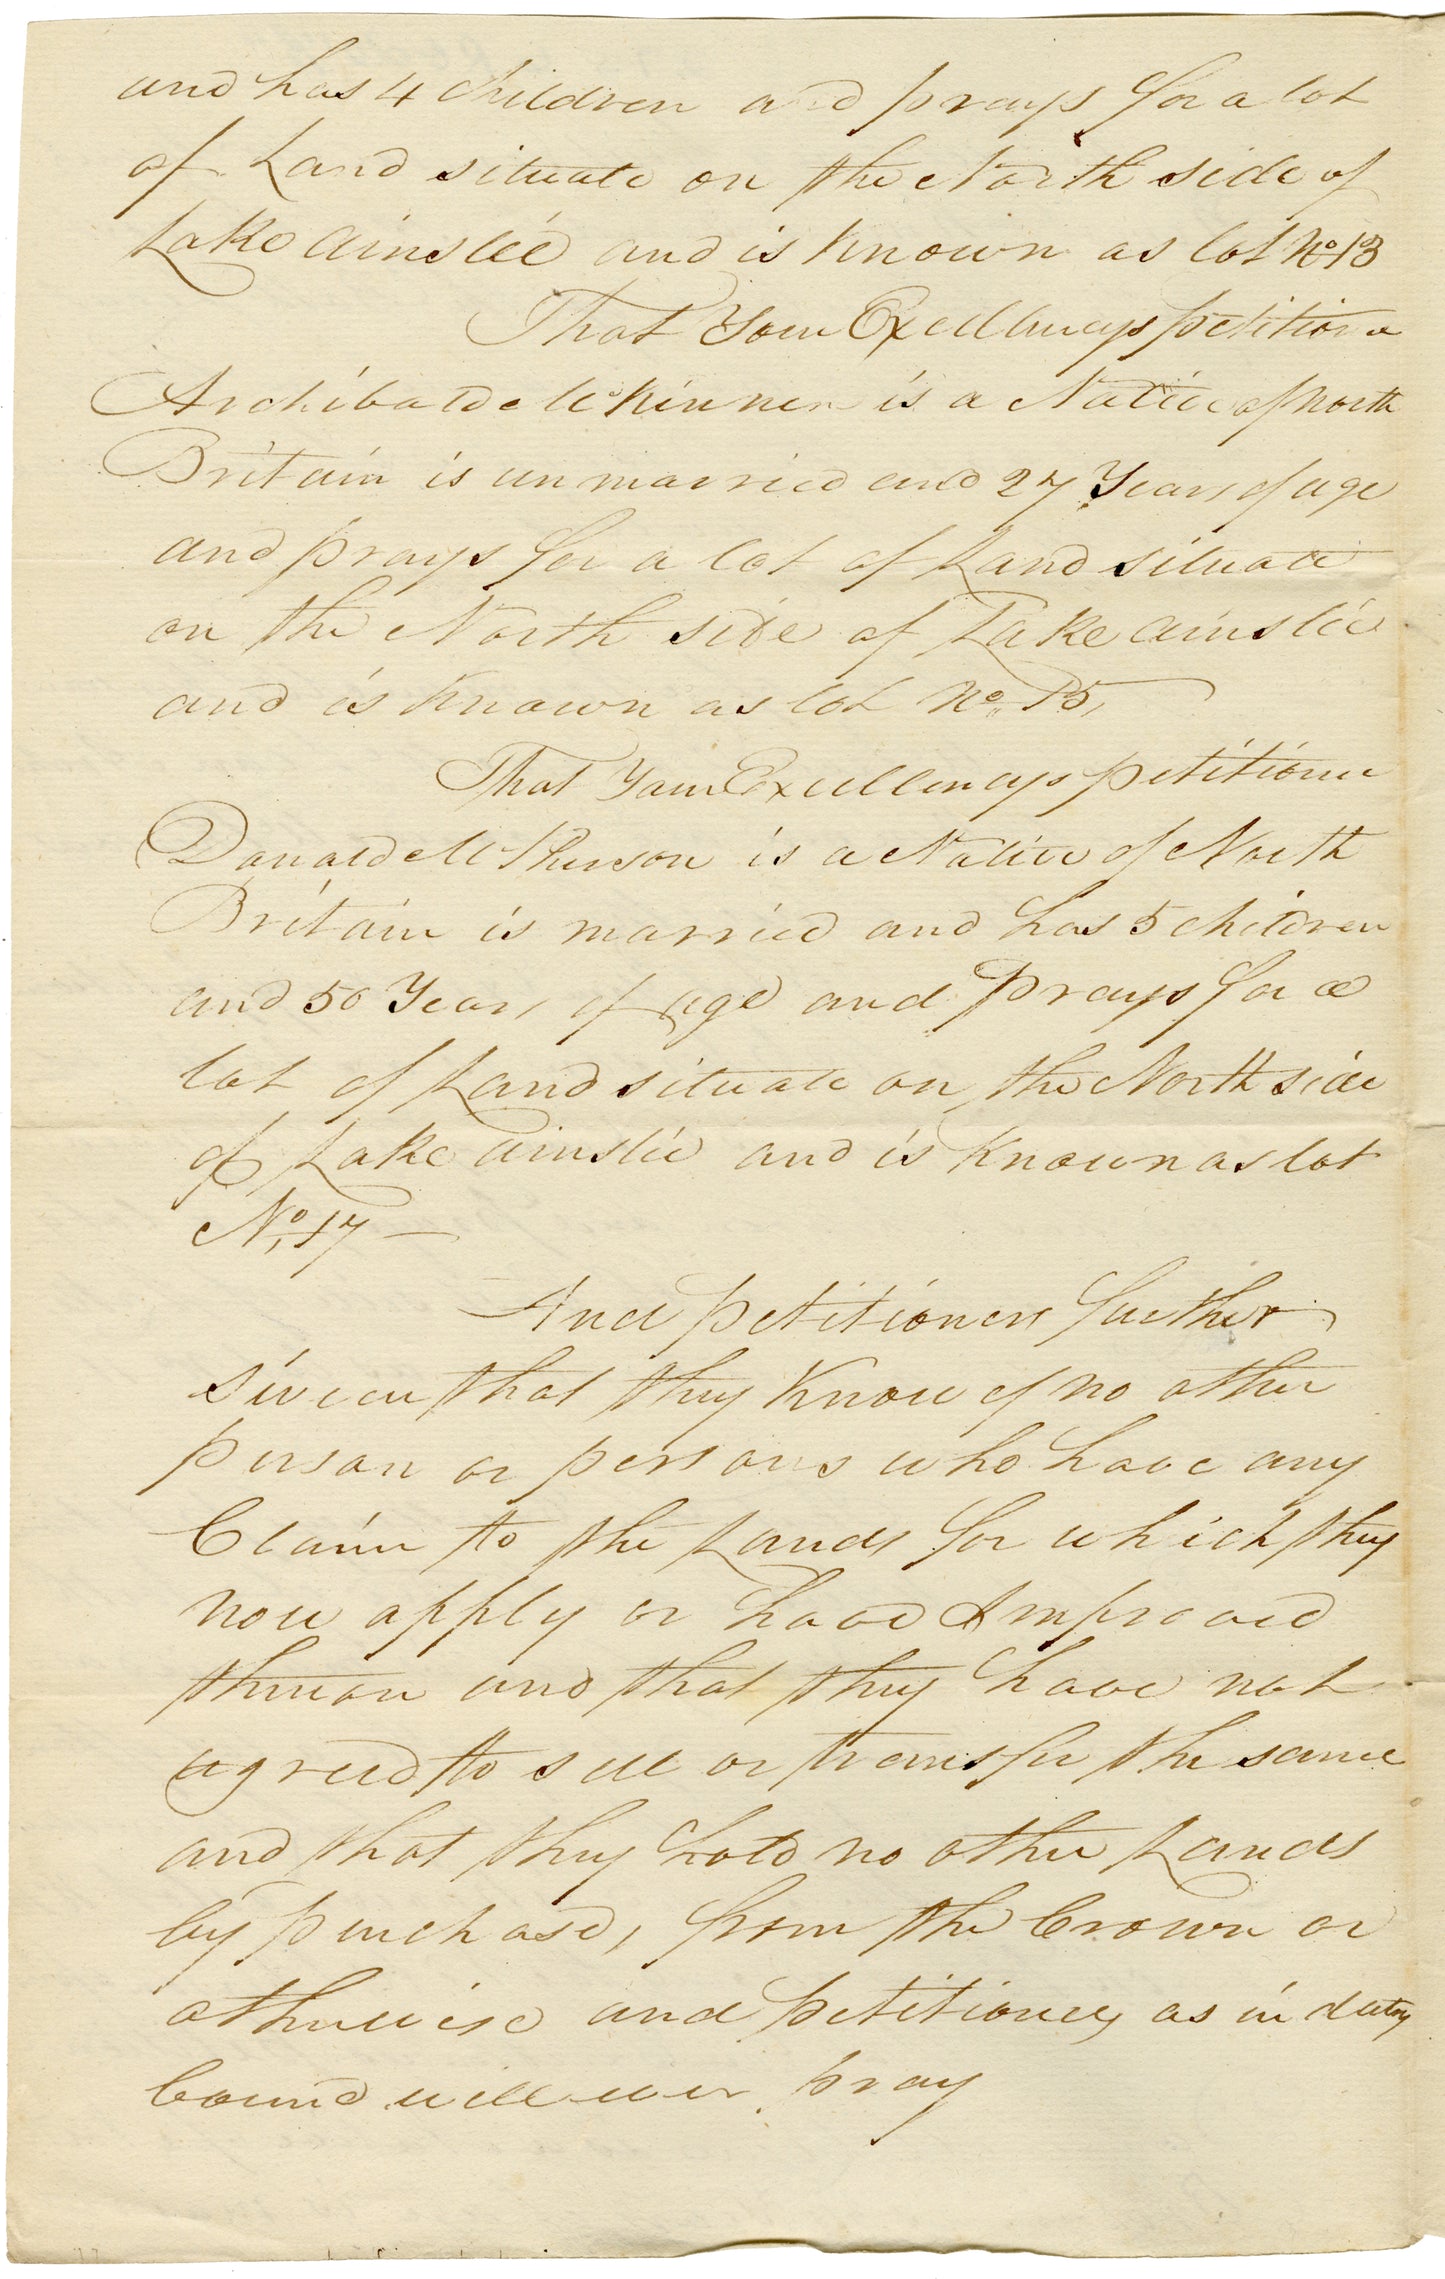 and has 4 Children and prays for a lot
of Land situate on the North side of
Lake Ainslie and is known as lot No 13
That Your Excellencys petitioner
Archibald McKinnen is a Native of North
Britain is unmarried and 27 Years of age
and prays for a lot of Land situate
on the North side of Lake Ainslie
and is known as lot No 15,
That Your Excellencys petitioner
Donald McPherson is a Native of North
Britain is married and has 5 children
and 50 Years of age and prays for a
lot of Land situate on the North side
of Lake Ainslie and is known as lot
No, 17 —
And petitioners further
swear that they know of no other
person or persons who have any
Claim to the Lands for which they
now apply or have Improved
thereon and that they have not
agreed to sell or transfer the same
and that they hold no other Lands
by purchase, from the Crown or
otherwise and petitioners as in duty
bound will ever pray